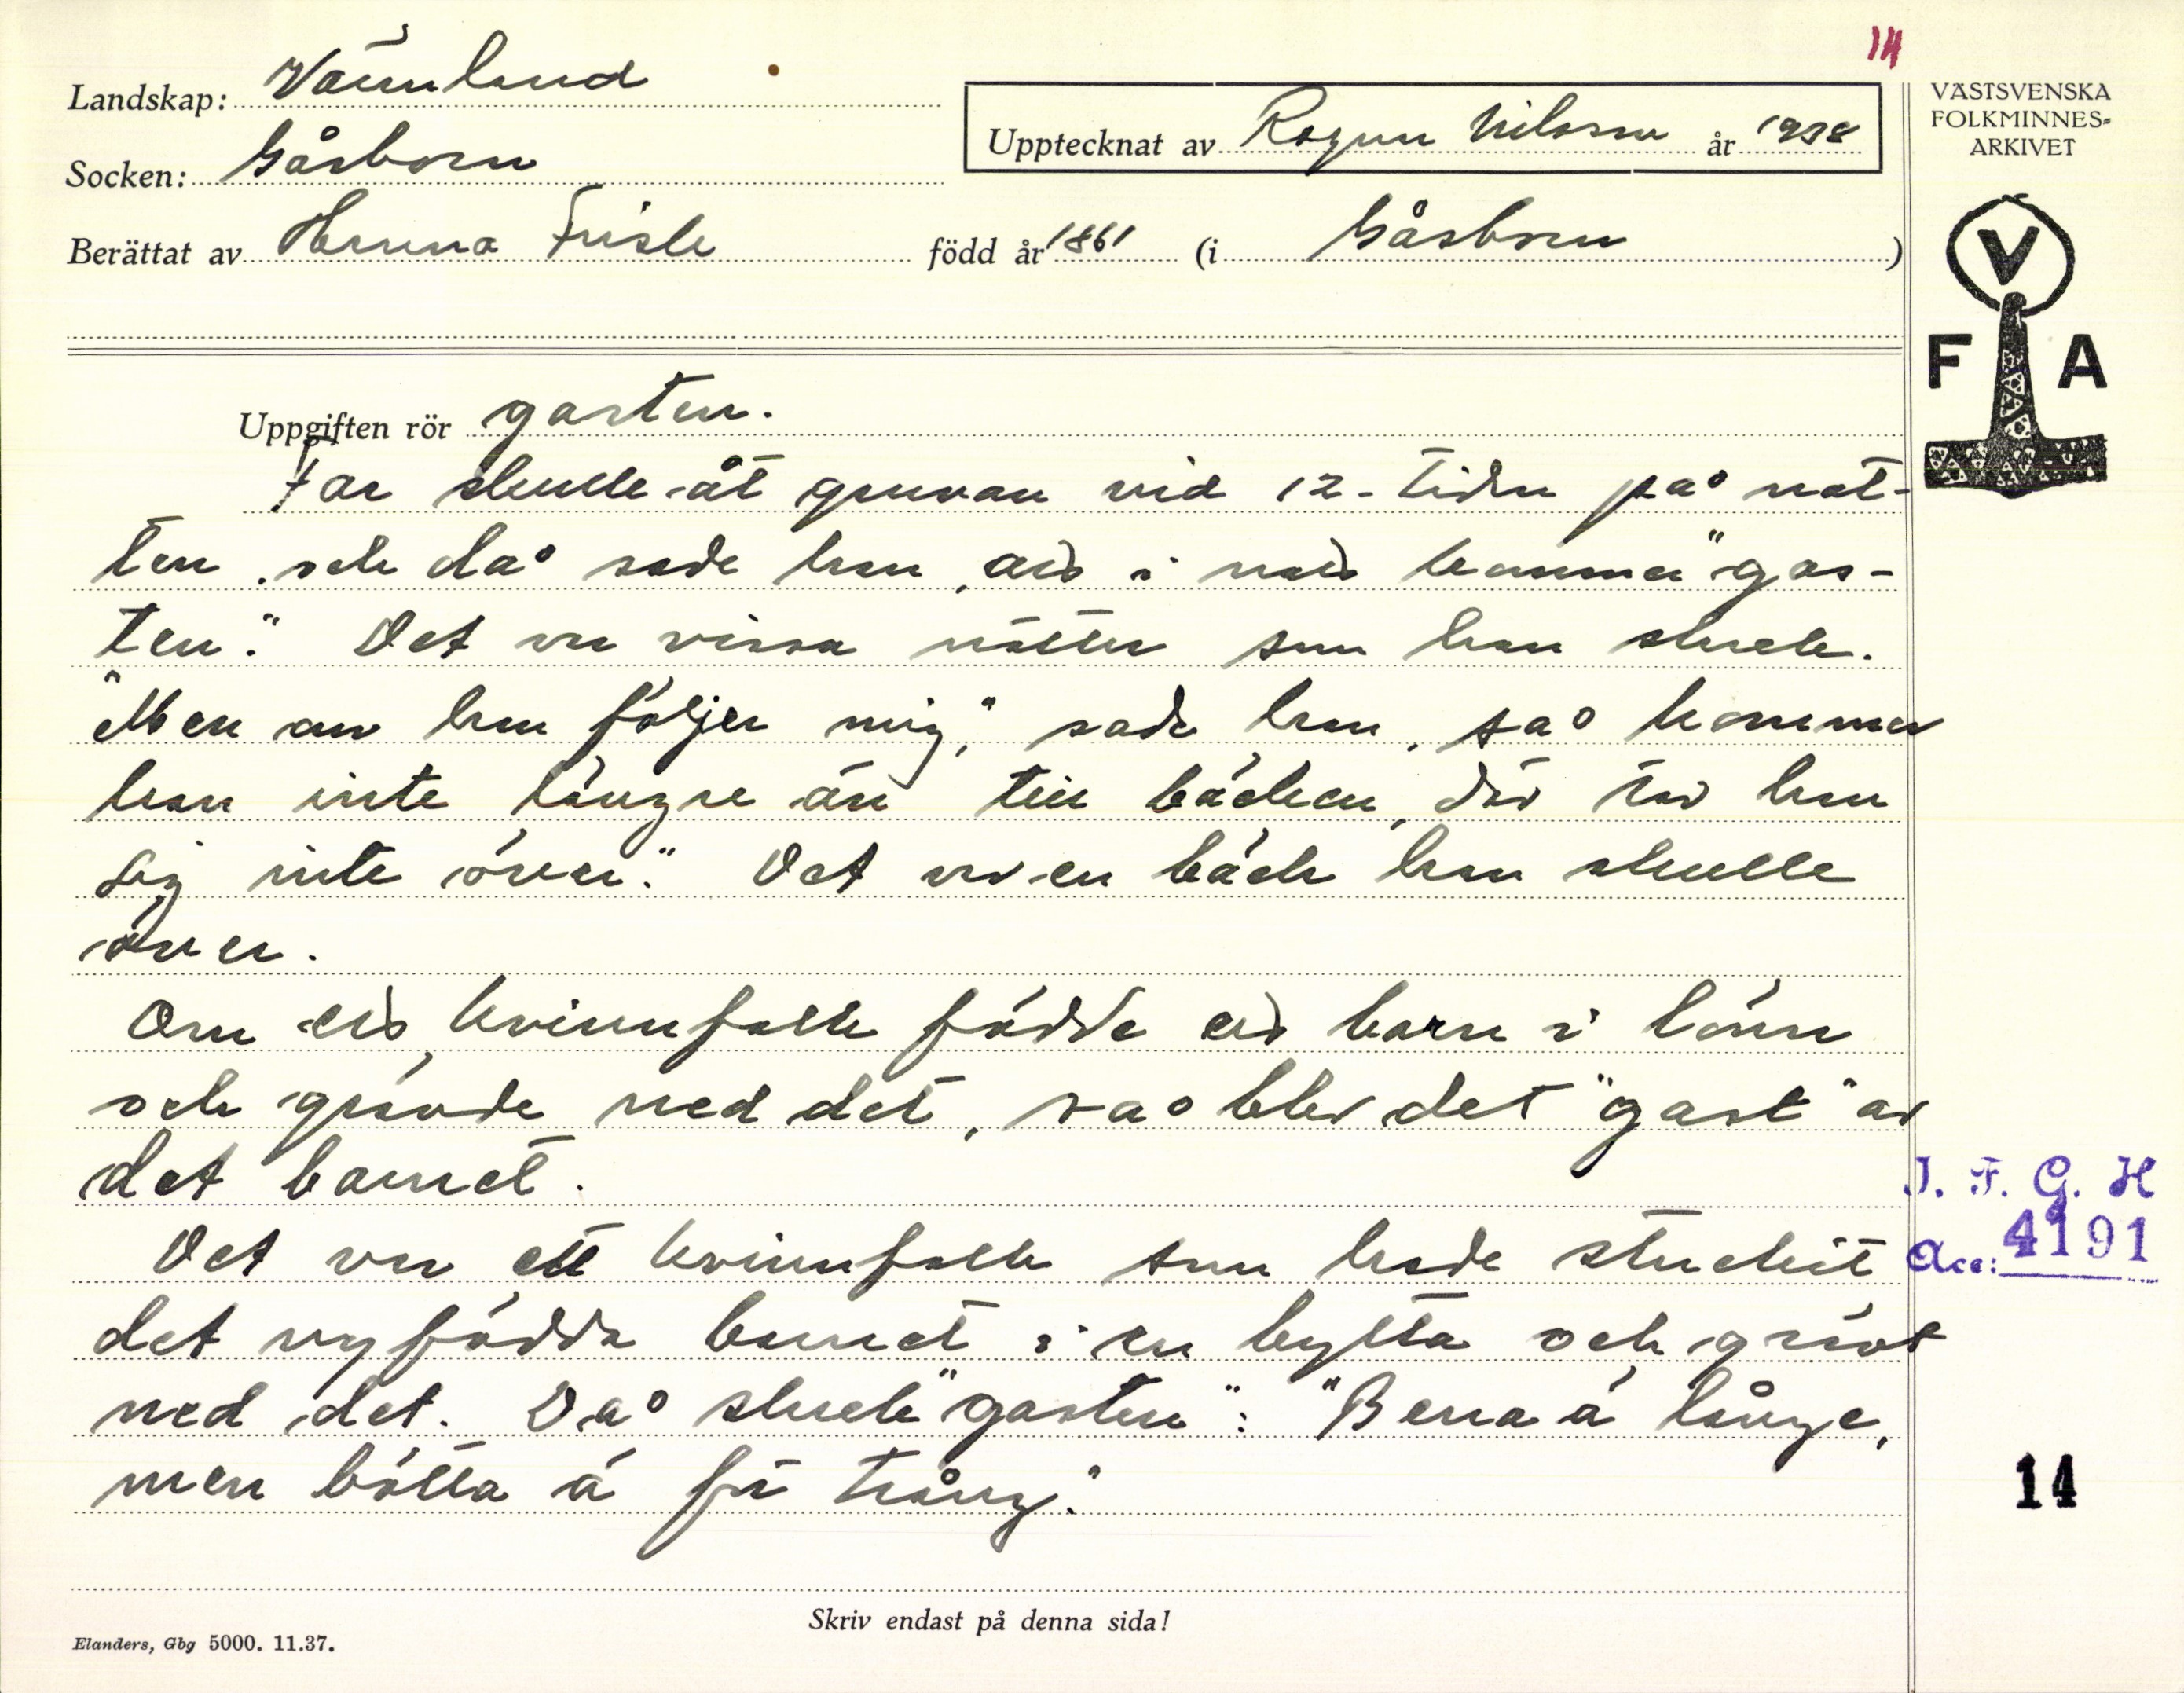 14
Landskap: Värmland
Socken: Gåsborn
Upptecknat av Ragnar Nilsson år 1938
Berättat av Hanna Frisk född år 1861 (i Gåsborn)
VÄSTSVENSKA
FOLKMINNES-
ARKIVET
V
F A
Uppgiften rör gasten.
Far skulle åt gruvan vid 12-tiden på nat-
ten och då sade han, att i natt kommer "gas-
ten". Det var vissa nätter som han skrek.
"Men om han följer mig," sade han, så kommer
han inte längre än till bäcken, där tar han
sig inte över." Det var en bäck han skulle
över.
Om ett kvinnfolk födde ett barn i lönn
och grävde ned det, så blev det "gast" av
det barnet.
Det var ett kvinnfolk som hade stuckit
det nyfödda barnet i en bytta och grävt
ned det. Då skrek "gasten": "Bena ä långe,
men bötta ä för trång."
J. F. G. H
Acc: 4191
14
Skriv endast på denna sida!
Elanders, Gbg 5000. 11.37.